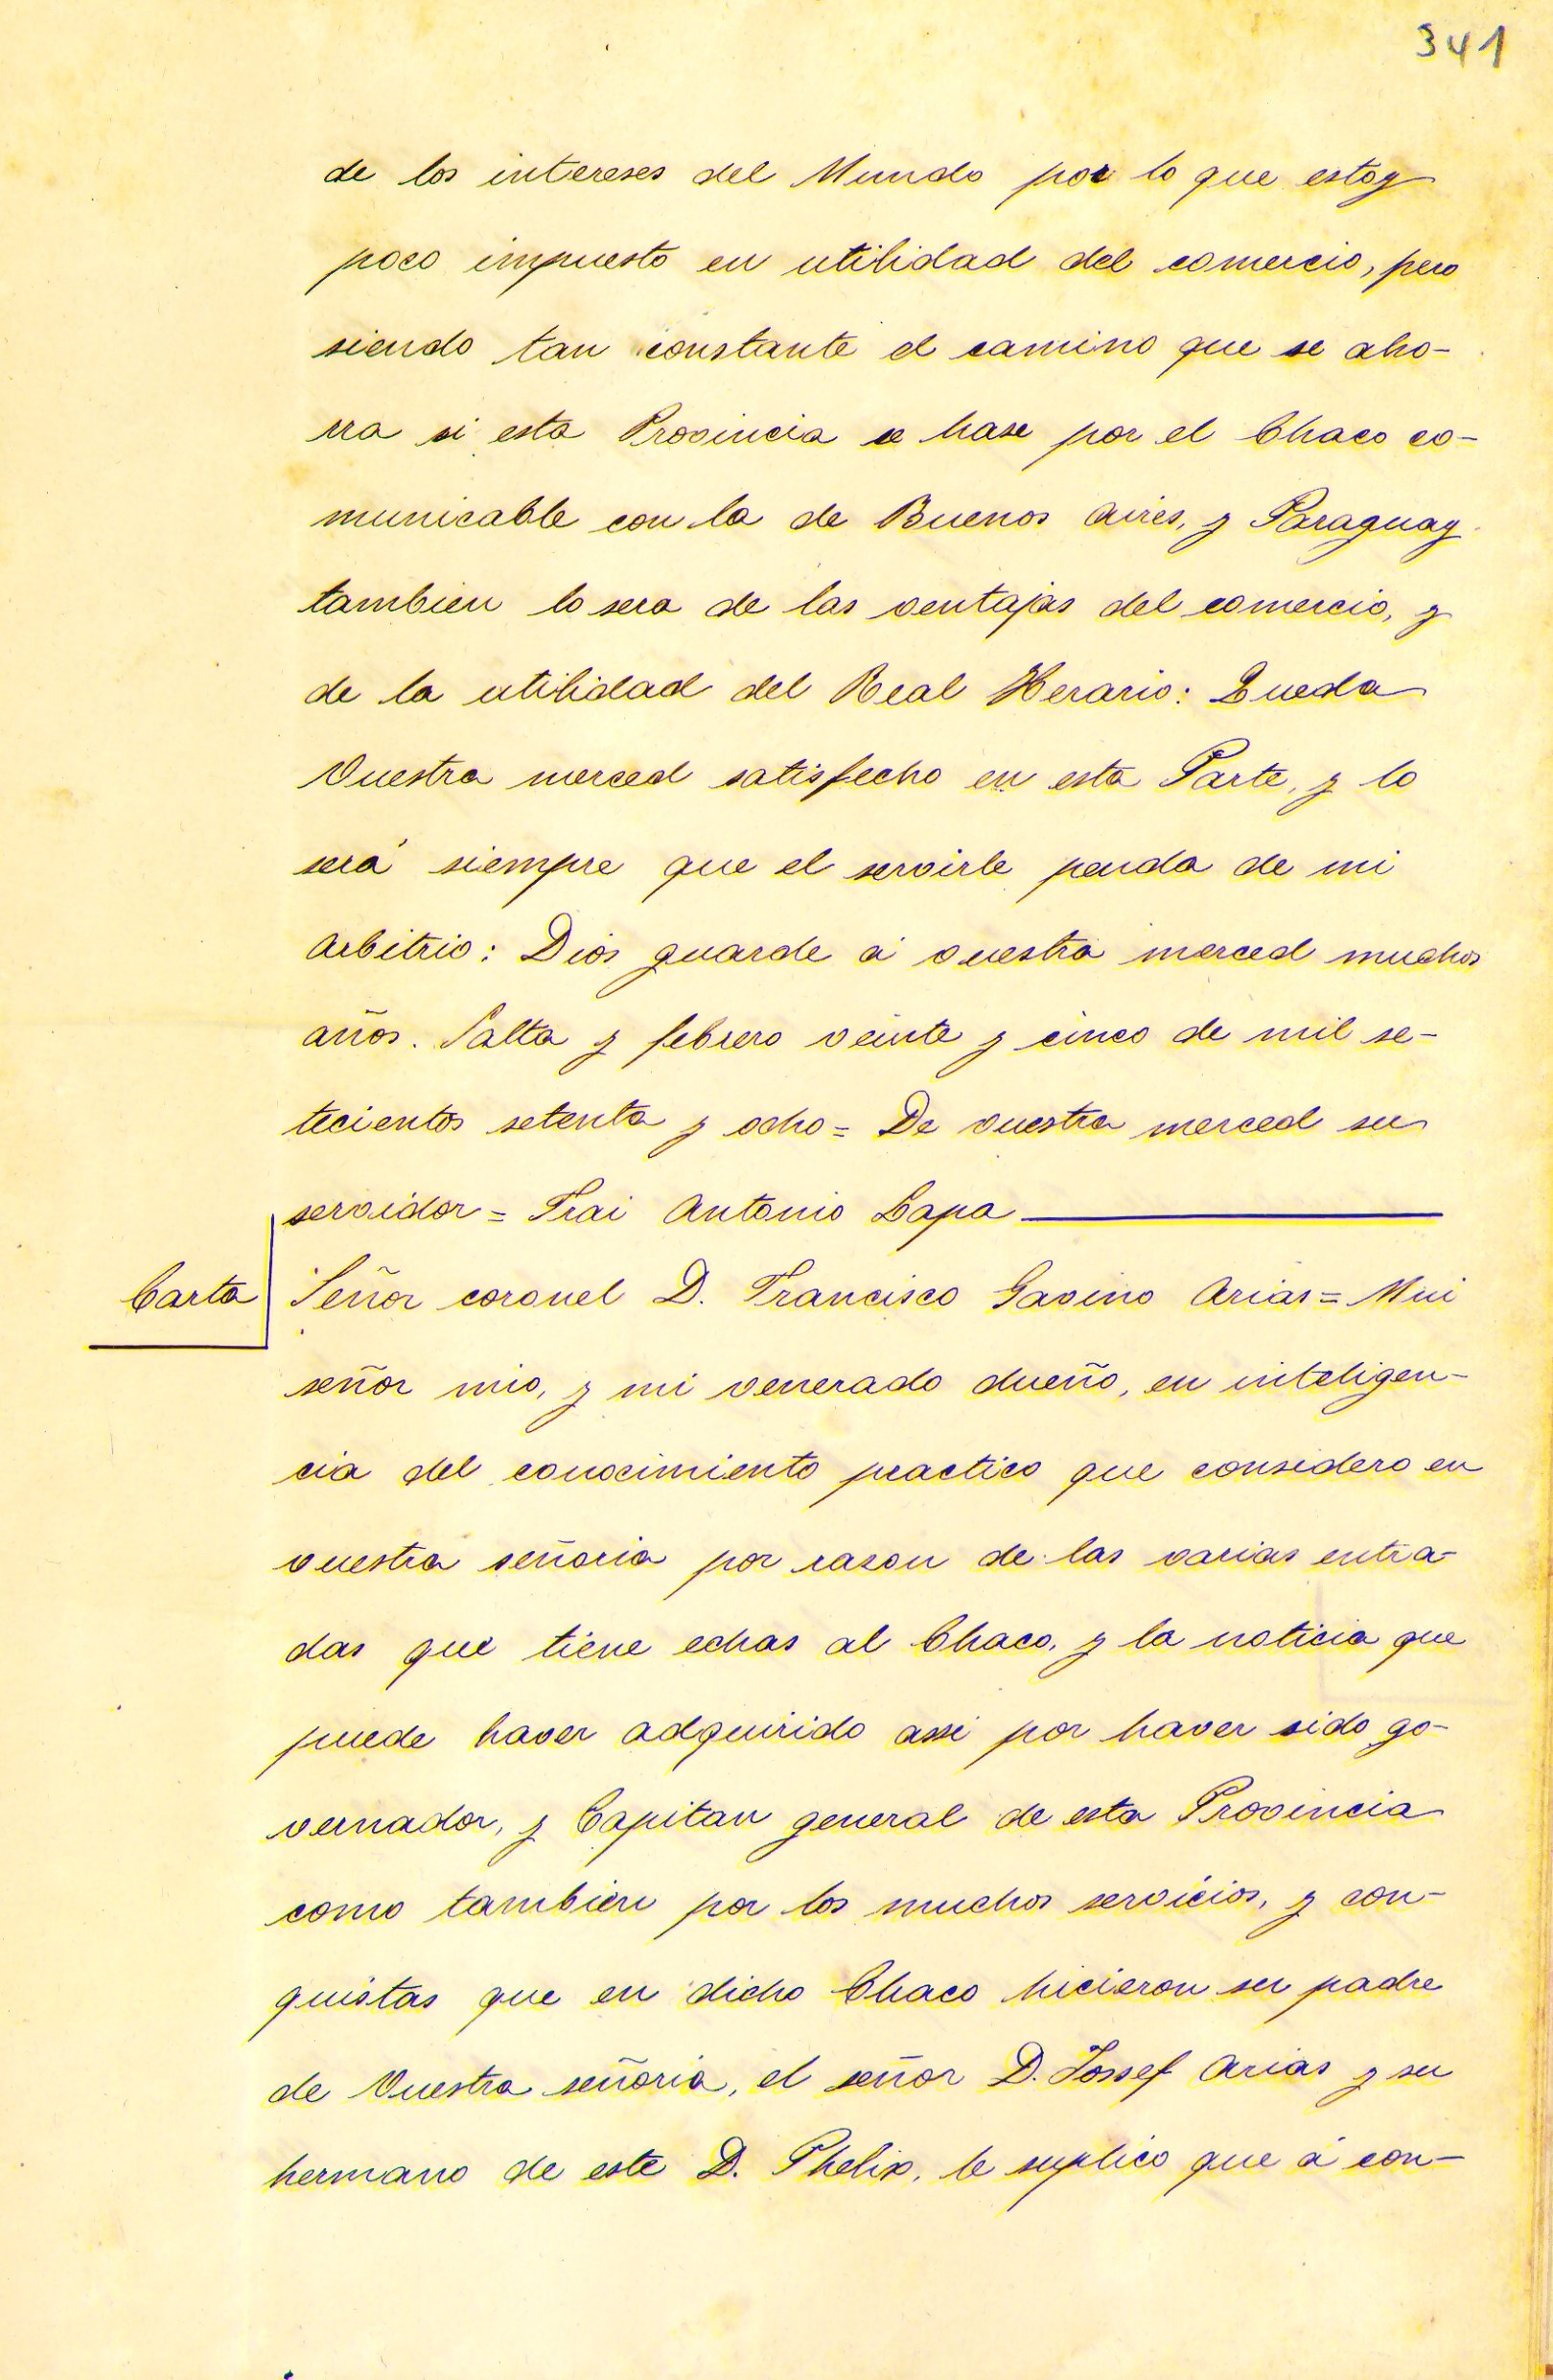 341
de los intereses del Mundo por lo que estoy
poco impuesto en utilidad del comercio, pero
siendo tan constante el camino que se aho-
rra si esta Provincia se hase por el Chaco co-
municable con la de Buenos Aires, y Paraguay
tambien lo sera de las ventajas del comercio, y
de la utilidad del Real Herario: Queda
Vuestra merced satisfecho en esta Parte, y lo
será siempre que el servirle penda de mi
Arbitrio: Dios guarde á vuestra merced muchos
años. Salta y febrero veinte y cinco de mil se-
tecientos setenta y ocho = De vuestra merced su
servidor = Frai Antonio Lapa
Carta
Señor coronel D. Francisco Gavino Arias = Mui
señor mio, y mi venerado dueño, en inteligen-
cia del conocimiento practico que considero en
vuestra señoria por rason de las varias entra-
das que tiene echas al Chaco, y la noticia que
puede haver adquirido assi por haver sido go-
vernador, y Capitan general de esta Provincia
como tambien por los muchos servicios, y con-
quistas que en dicho Chaco hicieron su padre
de Vuestra señoria, el señor D. Jossef Arias y su
hermano de este D. Phelix, le suplico que á con-